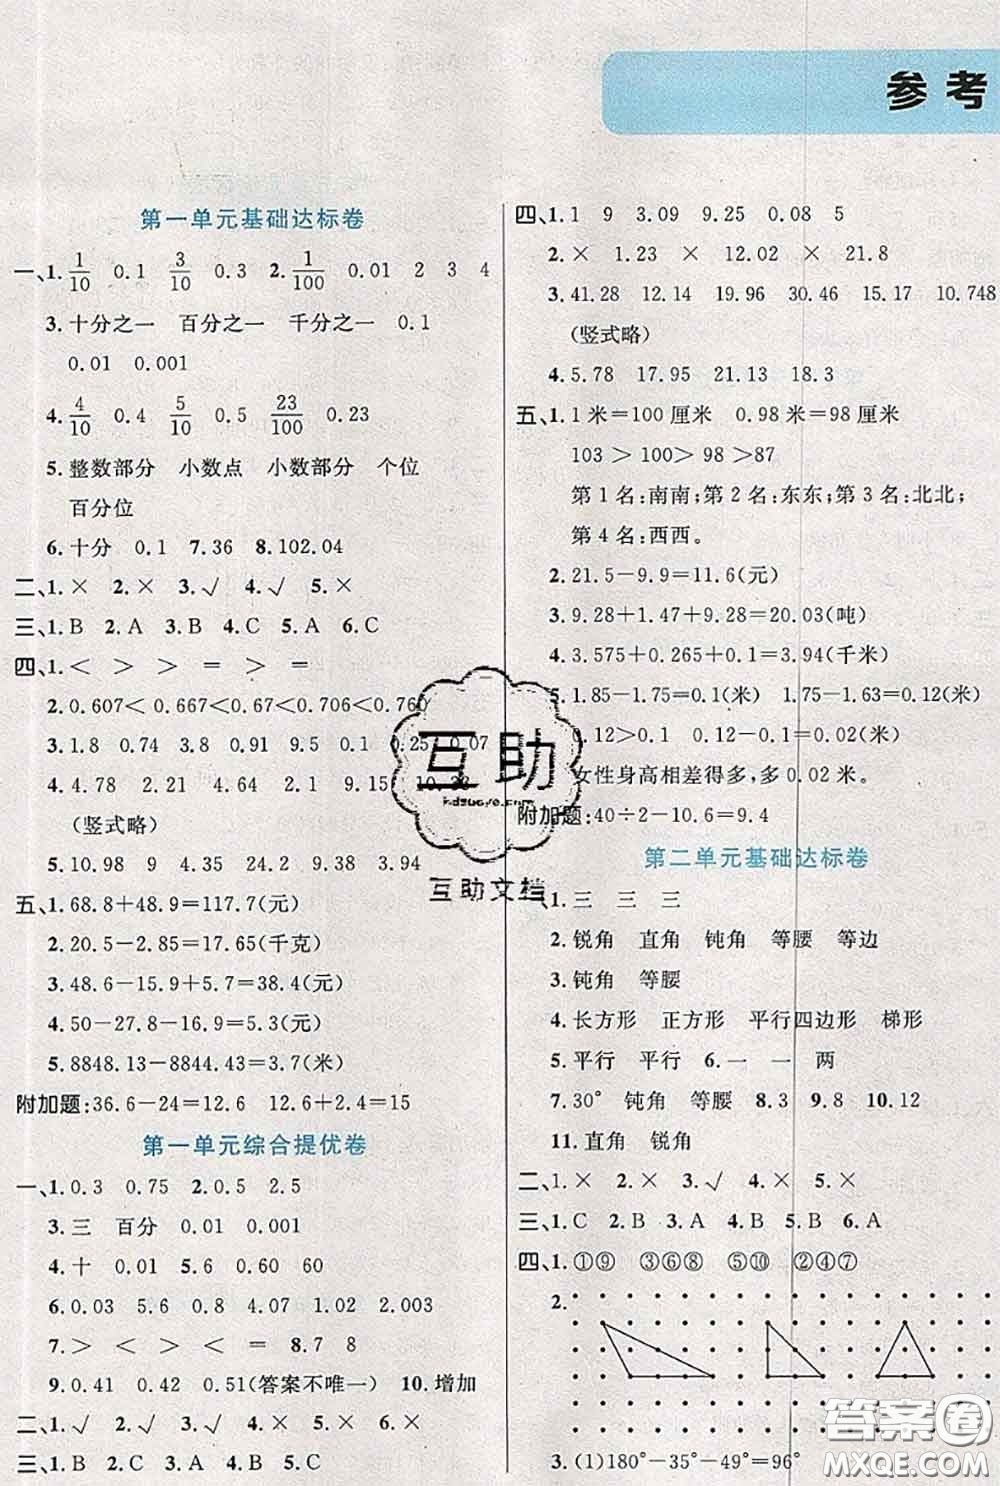 参考
第一单元基础达标卷
一、1. 1/10 0.1 3/10 0.3 2. 1/100 0.01 2 3 4
3.十分之一 百分之一 千分之一 0.1
0.01 0.001
4. 4/10 0.4 5/10 0.5 23/100 0.23
5.整数部分 小数点 小数部分 个位
百分位
6.十分 0.1 7.36 8.102.04
二、1.× 2.× 3.√ 4.√ 5.×
三、1.B 2.A 3.B 4.C 5.A 6.C
四、1.< > > = > =
2.0.607<0.667<0.67<0.706<0.760
3.1.8 0.74 0.91 9.5 0.1 0.25 0.07
4.4.78 2.21 4.51 2 9.15 10.33
(竖式略)
5.10.98 9 4.35 24.2 9.38 3.94
五、1.68.8+48.9=117.7(元)
2.20.5-2.85=17.65(千克)
3.48.6-15.9+5.7=38.4(元)
4.50-27.8-16.9=5.3(元)
5.8848.13-8844.43=3.7(米)
附加题:36.6-24=12.6 12.6+2.4=15
第一单元综合提优卷
一、1.0.3 0.75 2.0.5 2.5
3.三 百分 0.01 0.001
4.十 0.01 5.6 0.60 60
6.0.03 5.6 0.8 4.07 1.02 2.003
7.> < < = 8.7 8
9.0.41 0.42 0.51(答案不唯一) 10.增加
二、1.√ 2.√ 3.√ 4.× 5.×
三、1.B 2.B 3.A 4.A 5.B 6.C
四、1.1 9 3.09 9.25 0.08 5
2.× 1.23 × 12.02 × 21.8
3.41.28 12.14 19.96 30.46 15.17 10.748
(竖式略)
4.5.78 17.95 21.13 18.3
五、1.1米=100厘米 0.98米=98厘米
103 > 100 > 98 >87
第1名:南南;第2名:东东;第3名:北北;
第4名:西西。
2.21.5-9.9=11.6(元)
3.9.28+1.47+9.28=20.03(吨)
4.3.575+0.265+0.1=3.94(千米)
5.1.85-1.75=0.1(米) 1.75-1.63=0.12(米)
0.12>0.1 0.12-0.1=0.02(米)
女性身高相差得多,多0.02米。
附加题:40÷2-10.6=9.4
第二单元基础达标卷
一、1.三 三 三
2.锐角 直角 钝角 等腰 等边
3.钝角 等腰
4.长方形 正方形 平行四边形 梯形
5.平行 平行 6.一 一 两
7.30° 钝角 等腰 8.3 9.8 10.12
11.直角 锐角
二、1.× 2.× 3.√ 4.× 5.×
三、1.C 2.B 3.A 4.B 5.B 6.A
四、1.①⑨ ③⑥⑧ ⑤⑩ ②④⑦
2.
3.(1)180°-35°-49°=96°
互助
互助文档
答案卷
MXQE.COM